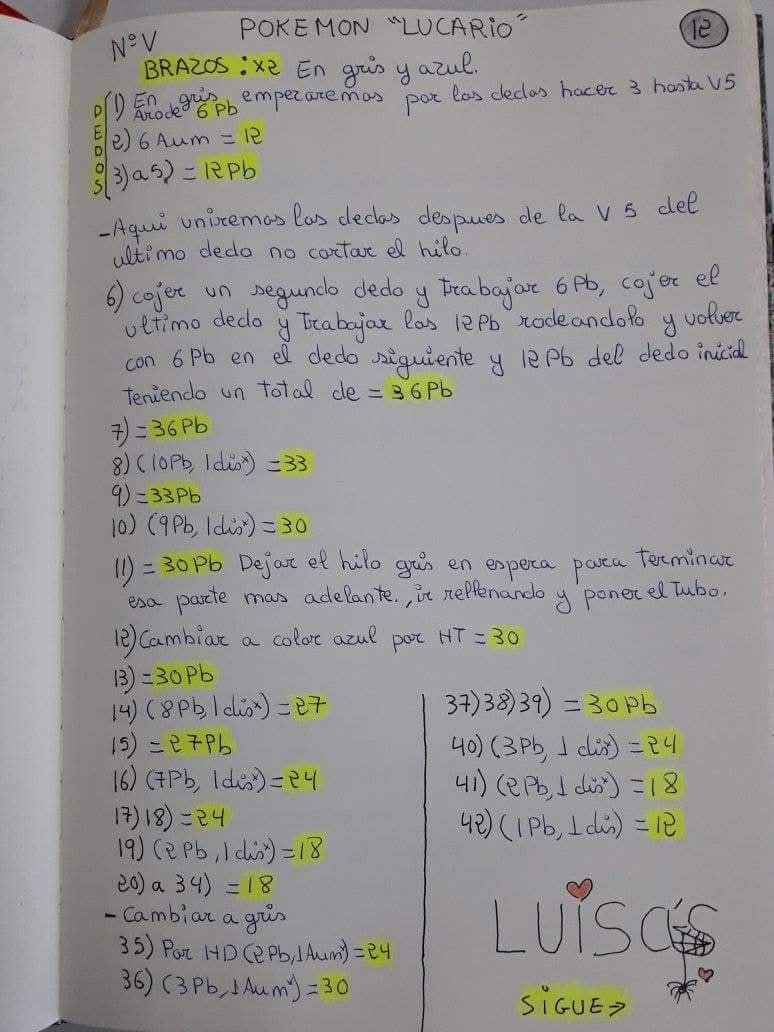 Nº V
POKEMON "LUCARIO"
12
BRAZOS: x2 En gris y azul.
DEDOS
1) En gris empezaremos por los dedos hacer 3 hasta V5
Aro de 6 Pb
2) 6 Aum = 12
3) a 5) = 12 Pb
- Aqui uniremos los dedos despues de la V 5 del
ultimo dedo no cortar el hilo.
6) cojer un segundo dedo y trabajar 6 Pb, cojer el
ultimo dedo y Trabajar los 12 Pb rodeandolo y volver
con 6 Pb en el dedo siguiente y 12 Pb del dedo inicial
teniendo un total de = 36 Pb
7) = 36 Pb
8) (10 Pb, 1 disx) = 33
9) = 33 Pb
10) (9 Pb, 1 disx) = 30
11) = 30 Pb Dejar el hilo gris en espera para terminar
esa parte mas adelante., ir rellenando y poner el Tubo.
12) Cambiar a color azul por HT = 30
13) = 30 Pb
14) (8 Pb, 1 disx) = 27
15) = 27 Pb
16) (7 Pb, 1 disx) = 24
17) 18) = 24
19) (2 Pb, 1 disx) = 18
20) a 34) = 18
- Cambiar a gris
35) Por HD (2 Pb, 1 Aum) = 24
36) (3 Pb, 1 Aum) = 30
37) 38) 39) = 30 Pb
40) (3 Pb, 1 dis) = 24
41) (2 Pb, 1 disx) = 18
42) (1 Pb, 1 dis) = 12
LUISA'S
SIGUE→